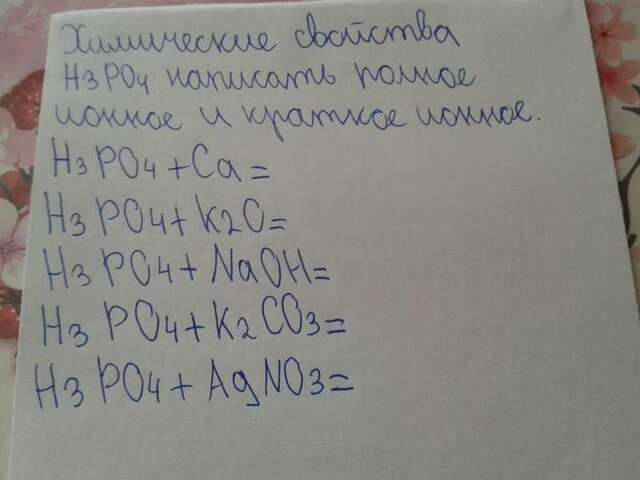 Химические свойства
H3PO4 написать полное
ионное и краткое ионное.
H3PO4+Ca=
H3PO4+K2O=
H3PO4+NaOH=
H3PO4+K2CO3=
H3PO4+AgNO3=